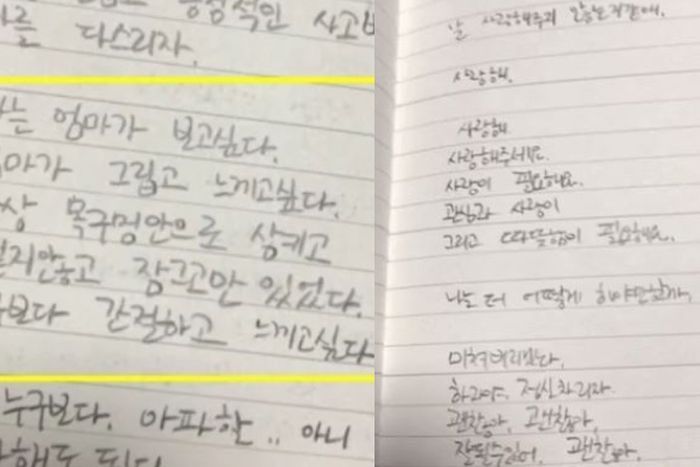 긍정적인 사고
를 다스리자.
는 엄마가 보고싶다.
마가 그립고 느끼고싶다.
상 목구멍안으로 삼키고
지안놓고 잠그고만 있었다.
보다 간절하고 느끼고싶다
누구보다. 아파할.. 아니
해도 된다.
날 사랑해주지 않는거같애.
사랑해.
사랑해
사랑해주세요.
사랑이 필요해요.
관심과 사랑이
그리고 따뜻함이 필요해요.
나는 더 어떻게 하야만할까.
미쳐버리겠다.
하라야. 정신차리자.
괜찮아, 괜찮아,
잘될수있어, 괜찮아.